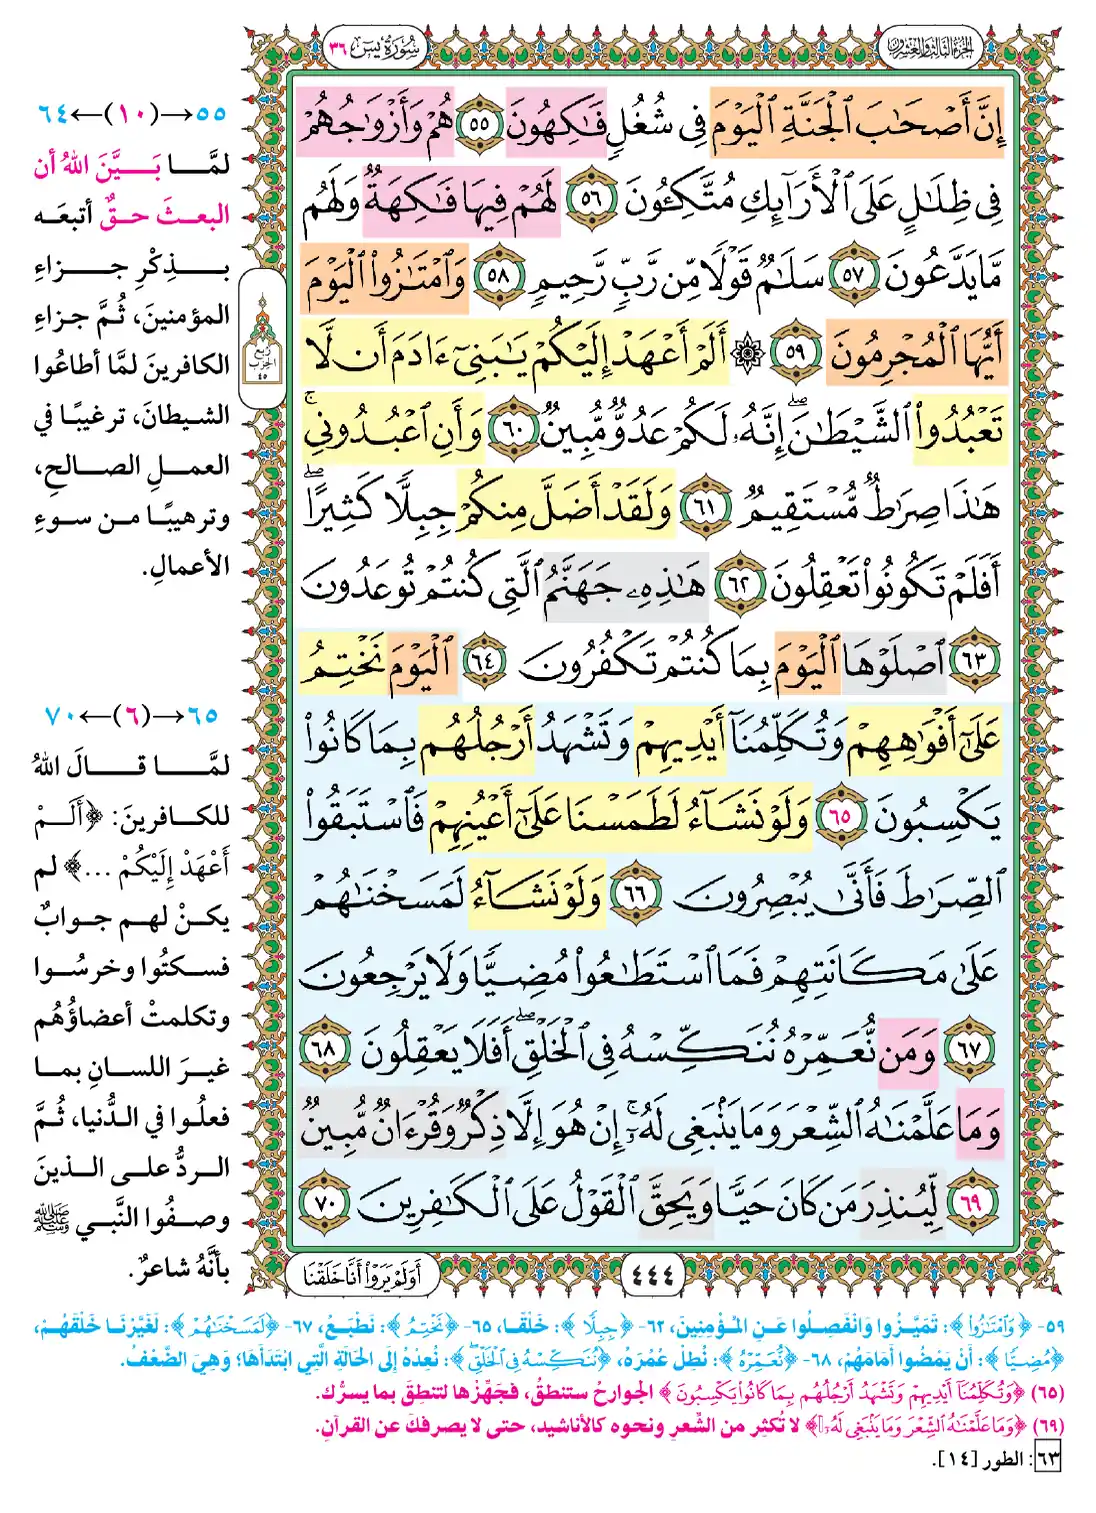 الجزء الثالث والعشرون
سورة يس ٣٦
إِنَّ أَصْحَٰبَ ٱلْجَنَّةِ ٱلْيَوْمَ فِى شُغُلٍ فَٰكِهُونَ ٥٥ هُمْ وَأَزْوَٰجُهُمْ
فِى ظِلَٰلٍ عَلَى ٱلْأَرَآئِكِ مُتَّكِـُٔونَ ٥٦ لَهُمْ فِيهَا فَٰكِهَةٌ وَلَهُم
مَّا يَدَّعُونَ ٥٧ سَلَٰمٌ قَوْلًا مِّن رَّبٍّ رَّحِيمٍ ٥٨ وَٱمْتَٰزُوا۟ ٱلْيَوْمَ
أَيُّهَا ٱلْمُجْرِمُونَ ٥٩ ۞ أَلَمْ أَعْهَدْ إِلَيْكُمْ يَٰبَنِىٓ ءَادَمَ أَن لَّا
تَعْبُدُوا۟ ٱلشَّيْطَٰنَ ۖ إِنَّهُۥ لَكُمْ عَدُوٌّ مُّبِينٌ ٦٠ وَأَنِ ٱعْبُدُونِى ۚ
هَٰذَا صِرَٰطٌ مُّسْتَقِيمٌ ٦١ وَلَقَدْ أَضَلَّ مِنكُمْ جِبِلًّا كَثِيرًا ۖ
أَفَلَمْ تَكُونُوا۟ تَعْقِلُونَ ٦٢ هَٰذِهِۦ جَهَنَّمُ ٱلَّتِى كُنتُمْ تُوعَدُونَ
٦٣ ٱصْلَوْهَا ٱلْيَوْمَ بِمَا كُنتُمْ تَكْفُرُونَ ٦٤ ٱلْيَوْمَ نَخْتِمُ
عَلَىٰٓ أَفْوَٰهِهِمْ وَتُكَلِّمُنَآ أَيْدِيهِمْ وَتَشْهَدُ أَرْجُلُهُم بِمَا كَانُوا۟
يَكْسِبُونَ ٦٥ وَلَوْ نَشَآءُ لَطَمَسْنَا عَلَىٰٓ أَعْيُنِهِمْ فَٱسْتَبَقُوا۟
ٱلصِّرَٰطَ فَأَنَّىٰ يُبْصِرُونَ ٦٦ وَلَوْ نَشَآءُ لَمَسَخْنَٰهُمْ
عَلَىٰ مَكَانَتِهِمْ فَمَا ٱسْتَطَٰعُوا۟ مُضِيًّا وَلَا يَرْجِعُونَ
٦٧ وَمَن نُّعَمِّرْهُ نُنَكِّسْهُ فِى ٱلْخَلْقِ ۖ أَفَلَا يَعْقِلُونَ ٦٨
وَمَا عَلَّمْنَٰهُ ٱلشِّعْرَ وَمَا يَنۢبَغِى لَهُۥٓ ۚ إِنْ هُوَ إِلَّا ذِكْرٌ وَقُرْءَانٌ مُّبِينٌ
٦٩ لِّيُنذِرَ مَن كَانَ حَيًّا وَيَحِقَّ ٱلْقَوْلُ عَلَى ٱلْكَٰفِرِينَ ٧٠
أَوَلَمْ يَرَوْا۟ أَنَّا خَلَقْنَا
٤٤٤
ربع
الحزب
٤٥
٥٥→(١٠)←٦٤
لمَّا بَيَّنَ اللهُ أن
البعثَ حقٌّ أتبعَه
بذِكْرِ جزاءِ
المؤمنينَ، ثُمَّ جزاءِ
الكافرينَ لمَّا أطاعُوا
الشيطانَ، ترغيبًا في
العملِ الصالحِ،
وترهيبًا من سوءِ
الأعمالِ.
٦٥→(٦)←٧٠
لمَّا قالَ اللهُ
للكافرينَ: ﴿أَلَمْ
أَعْهَدْ إِلَيْكُمْ ...﴾ لم
يكنْ لهم جوابٌ
فسكتُوا وخرسُوا
وتكلمتْ أعضاؤُهُم
غيرَ اللسانِ بما
فعلُوا في الدُّنيا، ثُمَّ
الردُّ على الذينَ
وصفُوا النَّبي ﷺ
بأنَّهُ شاعرٌ.
٥٩- ﴿وَٱمْتَٰزُوا۟﴾: تَمَيَّزُوا وَانْفَصِلُوا عَنِ المُؤْمِنِينَ، ٦٢- ﴿جِبِلًّا﴾: خَلْقًا، ٦٥- ﴿نَخْتِمُ﴾: نَطْبَعُ، ٦٧- ﴿لَمَسَخْنَٰهُمْ﴾: لَغَيَّرْنَا خَلْقَهُمْ،
﴿مُضِيًّا﴾: أَنْ يَمْضُوا أَمَامَهُمْ، ٦٨- ﴿نُّعَمِّرْهُ﴾: نُطِلْ عُمْرَهُ، ﴿نُنَكِّسْهُ فِى ٱلْخَلْقِ﴾: نُعِدْهُ إِلَى الحَالَةِ الَّتِي ابْتَدَأَهَا؛ وَهِيَ الضَّعْفُ.
(٦٥) ﴿وَتُكَلِّمُنَآ أَيْدِيهِمْ وَتَشْهَدُ أَرْجُلُهُم بِمَا كَانُوا۟ يَكْسِبُونَ﴾ الجوارحُ ستنطقُ، فجَهِّزْها لتنطِقَ بما يسرُّك.
(٦٩) ﴿وَمَا عَلَّمْنَٰهُ ٱلشِّعْرَ وَمَا يَنۢبَغِى لَهُۥٓ﴾ لا تُكثِر من الشِّعرِ ونحوه كالأناشيد، حتى لا يصرفكَ عن القرآنِ.
٦٣: الطور [١٤].